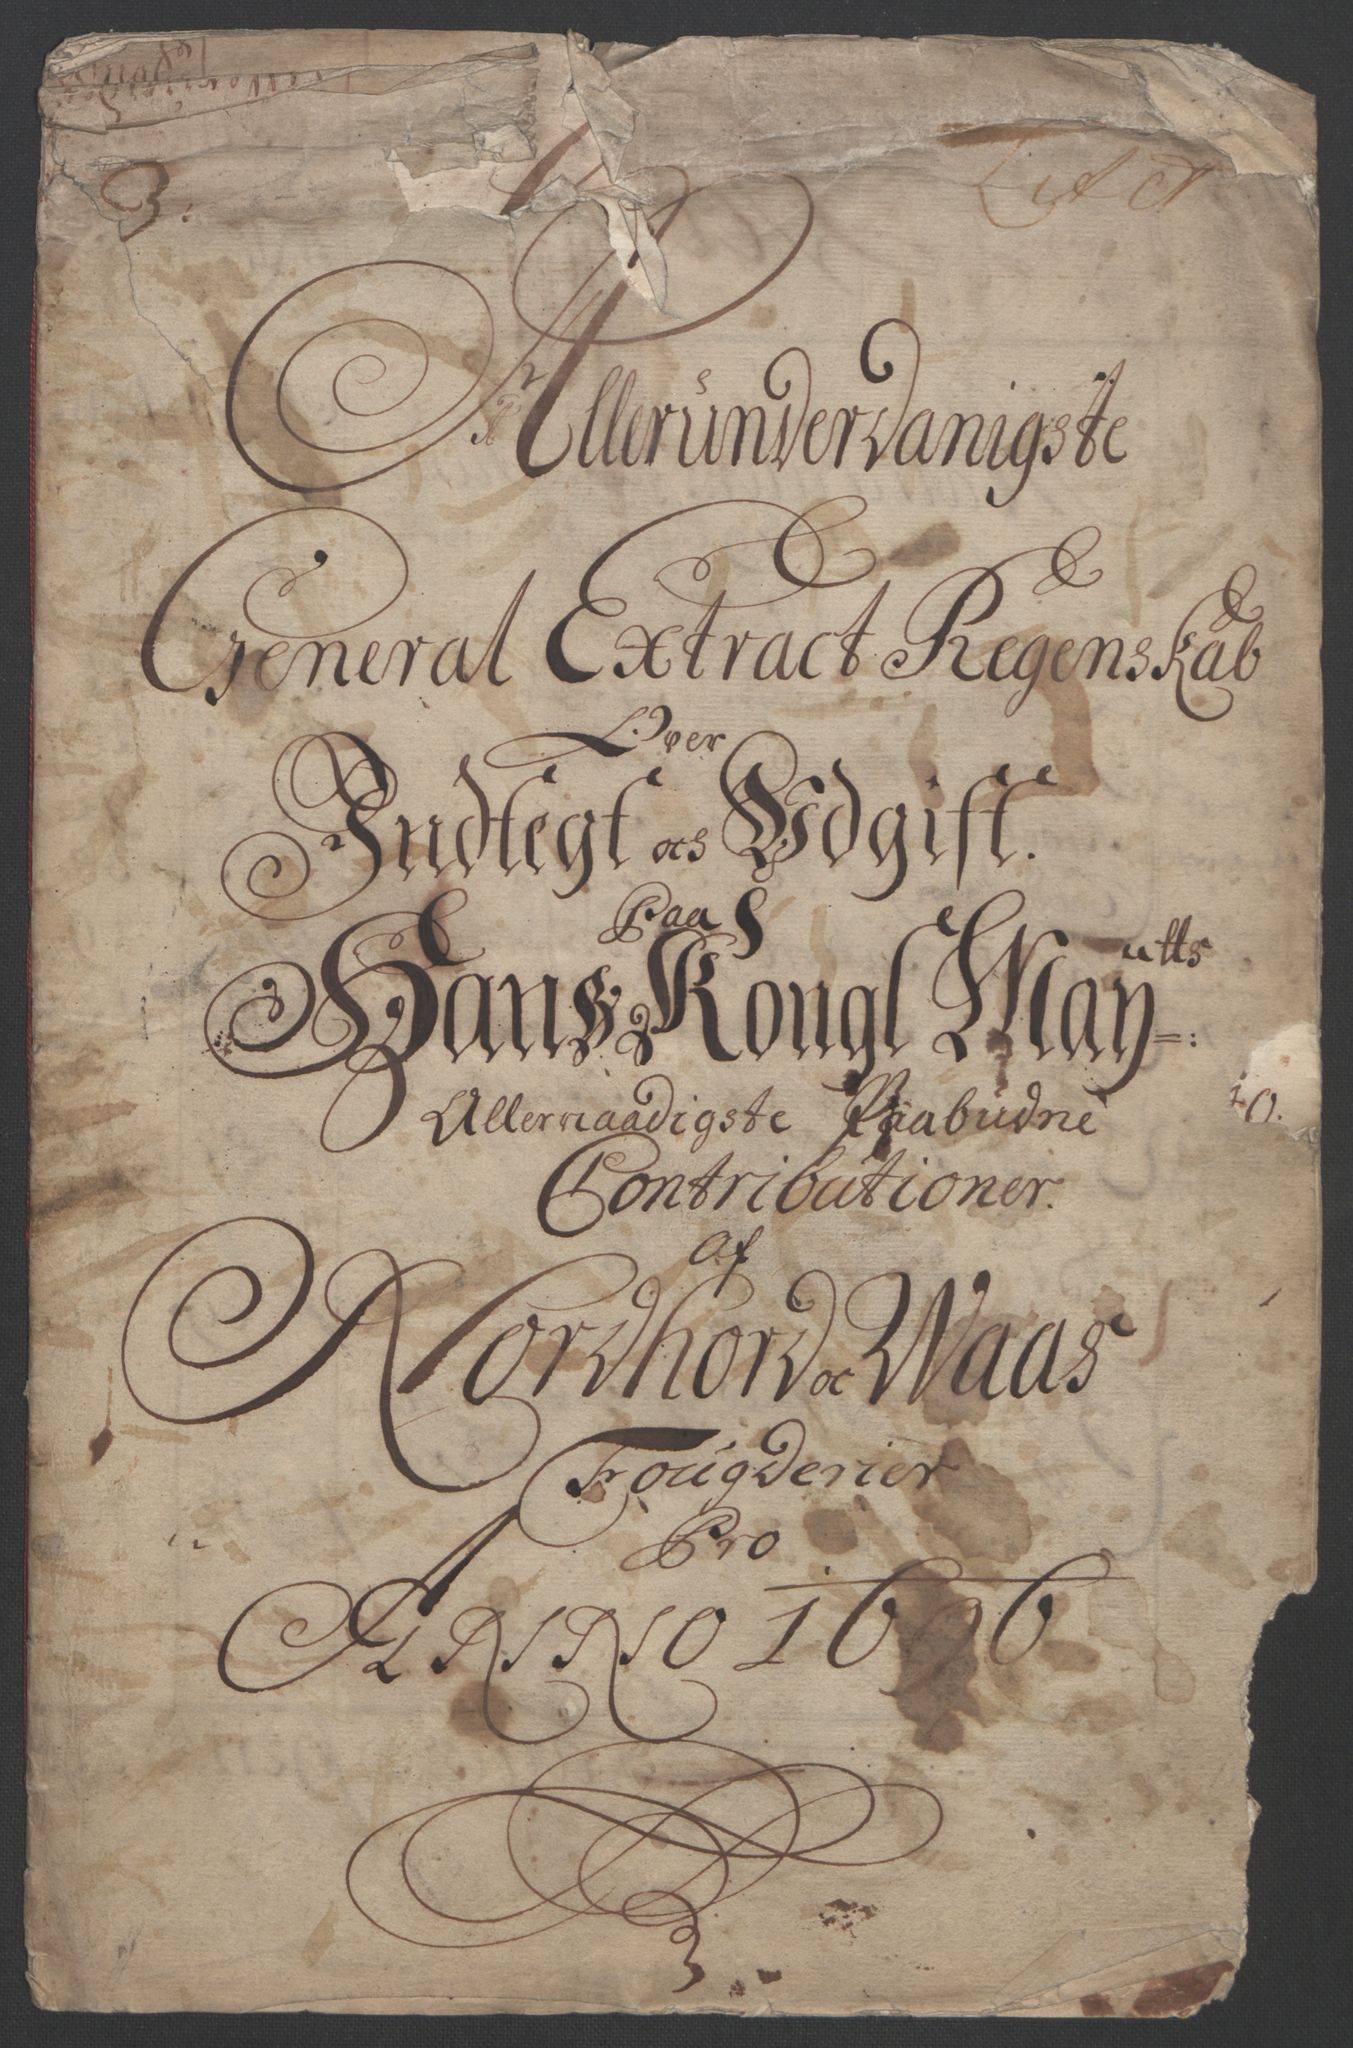 3.
Lit A
Allerunderdanigste
General Extract Regenskab
Over
Indtegt och Udgift.
Paa
Hans Kongl Mayttts
Allernaadigste Paabudne
Contributioner.
af
Nordhord oc Waas
Fougderier
Pro
ANNO 1696